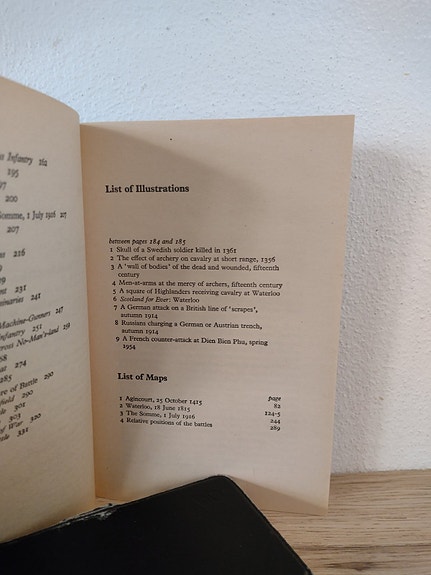 Infantry 162
195
97
200
Somme, 1 July 1916
207
216
231
241
Machine-Gunners 247
251
No-Man's-land
274
285
of Battle 290
290
303
War 320
331
List of Illustrations
between pages 184 and 185
1 Skull of a Swedish soldier killed in 1361
2 The effect of archery on cavalry at short range, 1356
3 A 'wall of bodies' of the dead and wounded, fifteenth
century
4 Men-at-arms at the mercy of archers, fifteenth century
5 A square of Highlanders receiving cavalry at Waterloo
6 Scotland for Ever: Waterloo
7 A German attack on a British line of 'scrapes',
autumn 1914
8 Russians charging a German or Austrian trench,
autumn 1914
9 A French counter-attack at Dien Bien Phu, spring
1954
List of Maps
page
1 Agincourt, 25 October 1415 82
2 Waterloo, 18 June 1815 124-5
3 The Somme, 1 July 1916 244
4 Relative positions of the battles 289